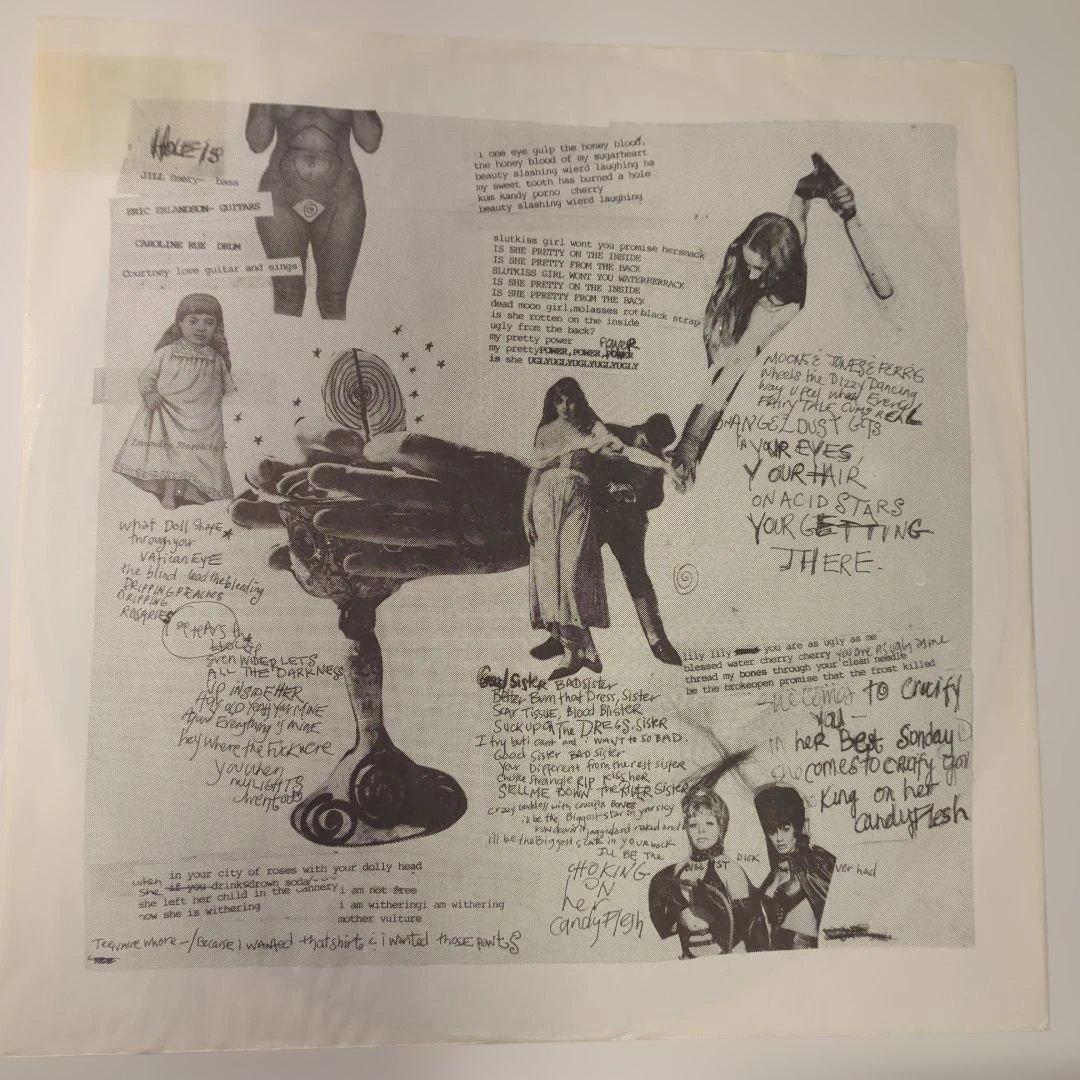 HOLE is
JILL Emery- bass
ERIC ERLANDSON- GUITARS
CAROLINE RUE DRUM
Courtney love guitar and sings
'i one eye gulp the honey blood,
the honey blood of my sugarheart
beauty slashing wierd laughing ha
my sweet tooth has burned a hole
kum kandy porno cherry
beauty slashing wierd laughing
slutkiss girl wont you promise hersmack
IS SHE PRETTY ON THE INSIDE
IS SHE PRETTY FROM THE BACK
SLUTKISS GIRL WONT YOU WATERHERRACK
IS SHE PRETTY ON THE INSIDE
IS SHE PPRETTY FROM THE BACK
dead moon girl,molasses rot black strap
is she rotten on the inside
ugly from the back?
my pretty power POWER
my prettyPOWER,POWER,POWER
is she UGLYUGLYUGLYUGLYUGLY
wheels the Dizzy Dancing
way u feel
FAIRY TALE Coms REAL
ANGELDUST GETS
in YOUR EYES,
YOUR HAIR
ON ACID STARS
YOUR GETTING
THERE-
what Doll Shape
through your
VATican EYE
the blind lead the bleeding
DRIPPING PEACHES
DRIPPING
ROSARIES
OF TEARS
HOLES
EVEN WIDER LETS
ALL THE DARKNESS
UP INSIDE HER
MINE
Everything is MINE
hey where the Fuck were
you when
my LIGHTS
went out
lily lily you are as ugly as me
blessed water cherry cherry you are as ugly as me
thread my bones through your clean needle
be the brokeopen promise that the frost killed
she comes to crucify
you-
in her Best Sonday
she comes to crucify you
King on her
candyFlesh
Good Sister BAD Sister
Better Burn that Dress, Sister
Scar Tissue, Blood Blister
Suck upon The DREGS, Sister
I try but i cant and i WANT to SO BAD.
Good Sister BAD sister
Your Different from the rest sister
choke strangle RIP Kiss her
SELL ME DOWN the RIVER SISTER
crazy Goddess with crucifix Bones
i'll be the Biggest star in your sky
jagged and naked and
i'll be the Biggest scar in your back
I'LL BE THE
DICK
ver had
CHOKING
ON
her
candyFlesh
when in your city of roses with your dolly head
she if you drinksdrown soda
she left her child in the cannery
now she is withering
i am not free
i am witheringi am withering
mother vulture
Teenage whore-/Because i wanted that shirt & i wanted those pants